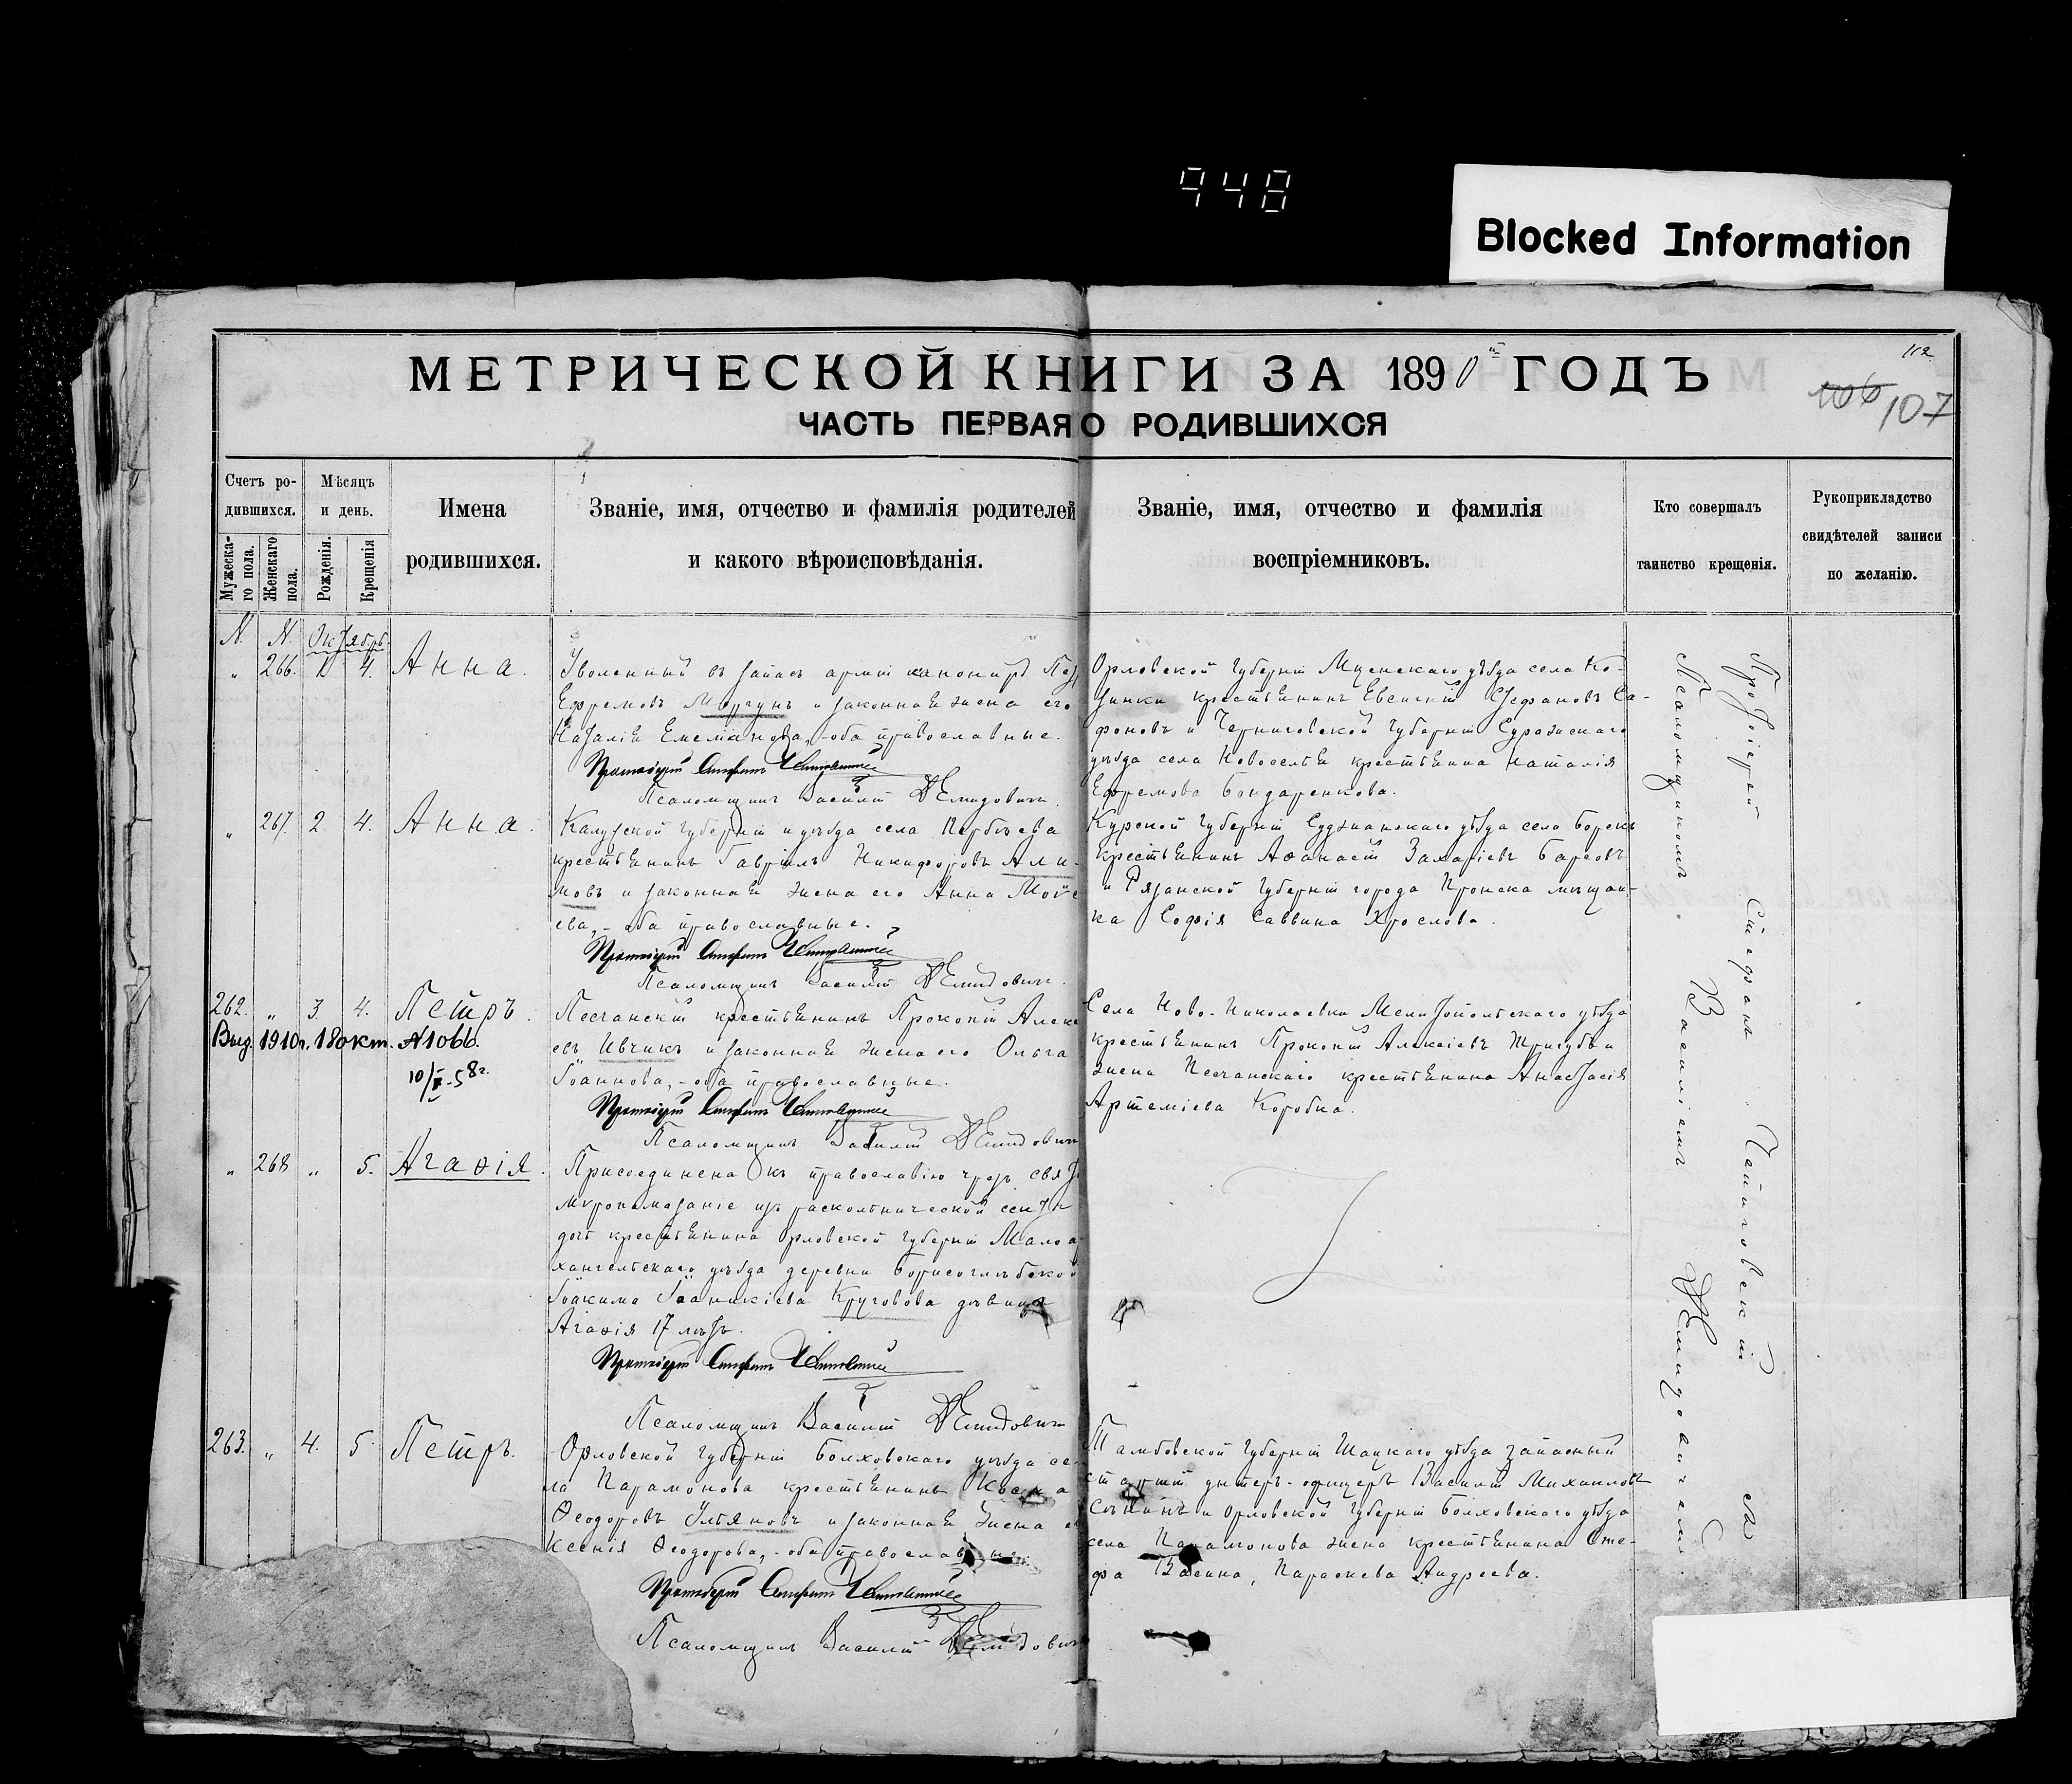 948
Blocked Information
МЕТРИЧЕСКОЙ КНИГИ ЗА 1890й ГОДЪ
112
106 107
ЧАСТЬ ПЕРВАЯ О РОДИВШИХСЯ
Счетъ ро-
дившихся.
Мужеска-
го пола.
Женскаго
пола.
Мѣсяцъ
и день.
Рожденія.
Крещенія
Имена
родившихся.
Званіе, имя, отчество и фамилія родителей
и какого вѣроисповѣданія.
Званіе, имя, отчество и фамилія
воспріемниковъ.
Кто совершалъ
таинство крещенія.
Рукоприкладство
свидѣтелей записи
по желанію.
N. N. Октябрь
" 266. 1 4. Анна.
Уволенный въ запасъ арміи канониръ
Ефремовъ Моргунъ и законная жена его
Наталія Емеліанова, - оба православные.
Протоіерей Стефанъ
Псаломщикъ Василій Демидовичъ.
Орловской губерніи Мценскаго уѣзда села Ко-
зинки крестьянинъ Евгеній Стефановъ Са-
фоновъ и Черниговской губерніи Суражскаго
уѣзда села Новоселья крестьянка Наталія
Ефремова Бондаренкова.
" 267. 2. 4. Анна.
Калужской губерніи и уѣзда села
крестьянинъ Гавріилъ Никифоровъ Али-
мовъ и законная жена его Анна Моѵсе
ева, - оба православные.
Протоіерей Стефанъ
Псаломщикъ Василій Демидовичъ.
Курской губерніи Суджанскаго уѣзда село
крестьянинъ Аѳанасій Захаріевъ
и Рязанской губерніи города Пронска мѣщан-
ка Софія Саввина
262. " 3. 4. Петръ.
Выд. 1910г. 18 окт. №1066.
10/X-58г.
Песчанскій крестьянинъ Прокопій Алексѣ
евъ Ивчикъ и законная жена его Ольга
Іоаннова, - оба православные.
Протоіерей Стефанъ
Псаломщикъ Василій Демидовичъ
Села Ново-Николаевки Мелитопольскаго уѣзда
крестьянинъ Прокопій Алексіевъ и
жена Песчанскаго крестьянина Анастасія
Артеміева Коробка.
" 268 " 5. Агаѳія.
Присоединена къ православію чрезъ свят
мѵропомазаніе изъ раскольнической секты
дочь крестьянина Орловской губерніи Малоар
хангельскаго уѣзда деревни Борисоглѣбской
Іоакима Іоаникіева Круговова дѣвица
Агаѳія 17 лѣтъ.
Протоіерей Стефанъ
Псаломщикъ Василій Демидовичъ
263. " 4. 5. Петръ.
Орловской губерніи Болховскаго уѣзда се-
ла Парамонова крестьянинъ Косма
Ѳеодоровъ Ульяновъ и законная жена е
Ксенія Ѳеодорова, - оба православные.
Протоіерей Стефанъ
Псаломщикъ Василій Демидовичъ
Тамбовской губерніи Шацкаго уѣзда запасный
старшій унтеръ-офицеръ Василій Михаиловъ
и Орловской губерніи Болховскаго уѣзда
села Парамонова жена крестьянина Сте-
фа Параскева Андреева.
Протоіерей Стефанъ съ
Псаломщикомъ Василіемъ Демидовичемъ.